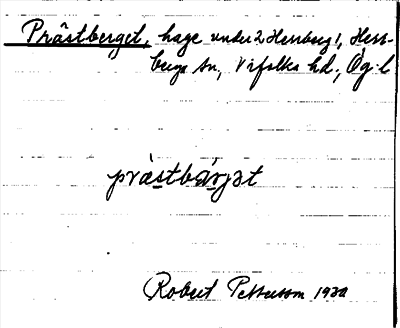 Prästberget, hage under 2 Herrberg 1, Herr-
berga sn, Vifolka hd., Ög. l.
prästbärjət
Robert Pettersson 1930